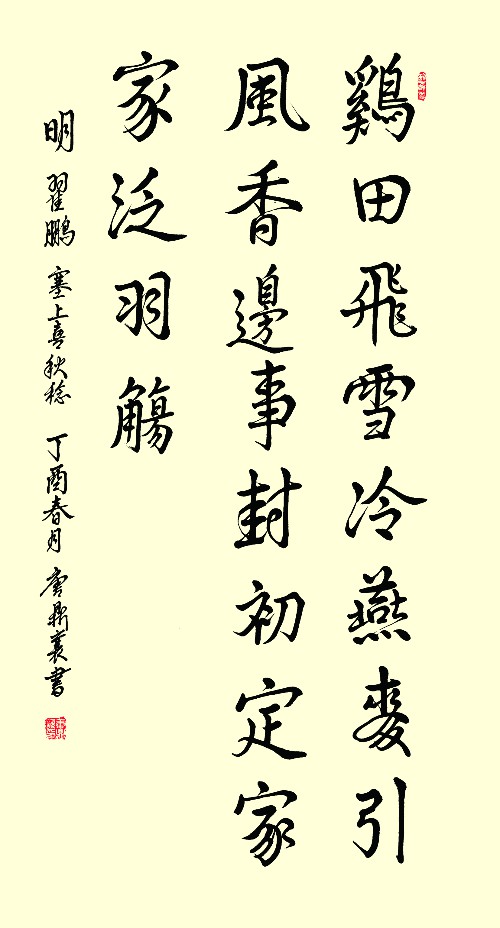 鷄田飛雪冷燕麥引
風香邊事封初定家
家泛羽觴
明 翟鵬 塞上喜秋稔 丁酉春月 唐鼎襄書